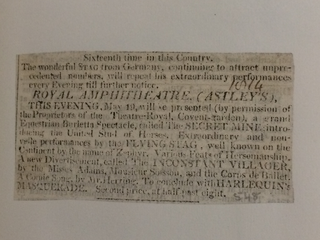 Sixteenth time in this Country.
The wonderful STAG from Germany, continuing to attract unpre-
cedented numbers, will repeat his extraordinary performances
every Evening till further notice.
1814
ROYAL AMPHITHEATRE, (ASTLEY'S),
THIS EVENING, May 18, will be presented (by permission of
the Proprietors of the Theatre-Royal, Covent-garden), a grand
Equestrian Burletta Spectacle, called The SECRET MINE, intro-
ducing the United Stud of Horses. Extraordinary and nou-
velle performances by the FLYING STAG, well known on the
Continent by the name of Zephyr. Various Feats of Horsemanship.
A new Divertisement, called The INCONSTANT VILLAGER,
by the Misses Adams, Monsieur and the Corps de Ballet.
A Comic Song, by Mr. Herring. To conclude with HARLEQUIN'S
MASQUERADE. Second price, at half past eight.